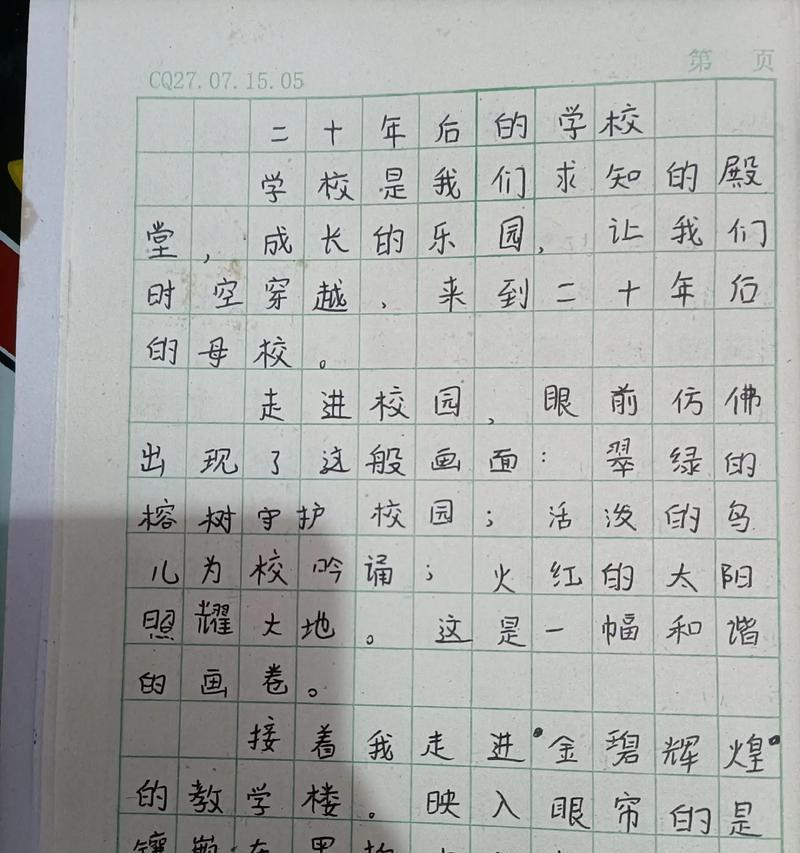 第 页
CQ27.07.15.05
二十年后的学校
学校是我们求知的殿
堂,成长的乐园,让我们
时空穿越,来到二十年后
的母校。
走进校园,眼前仿佛
出现了这般画面:翠绿的
榕树守护校园;活泼的鸟
儿为校吟诵;火红的太阳
照耀大地。这是一幅和谐
的画卷。
接着我走进“金碧辉煌”
的教学楼。映入眼帘的是
镶嵌在